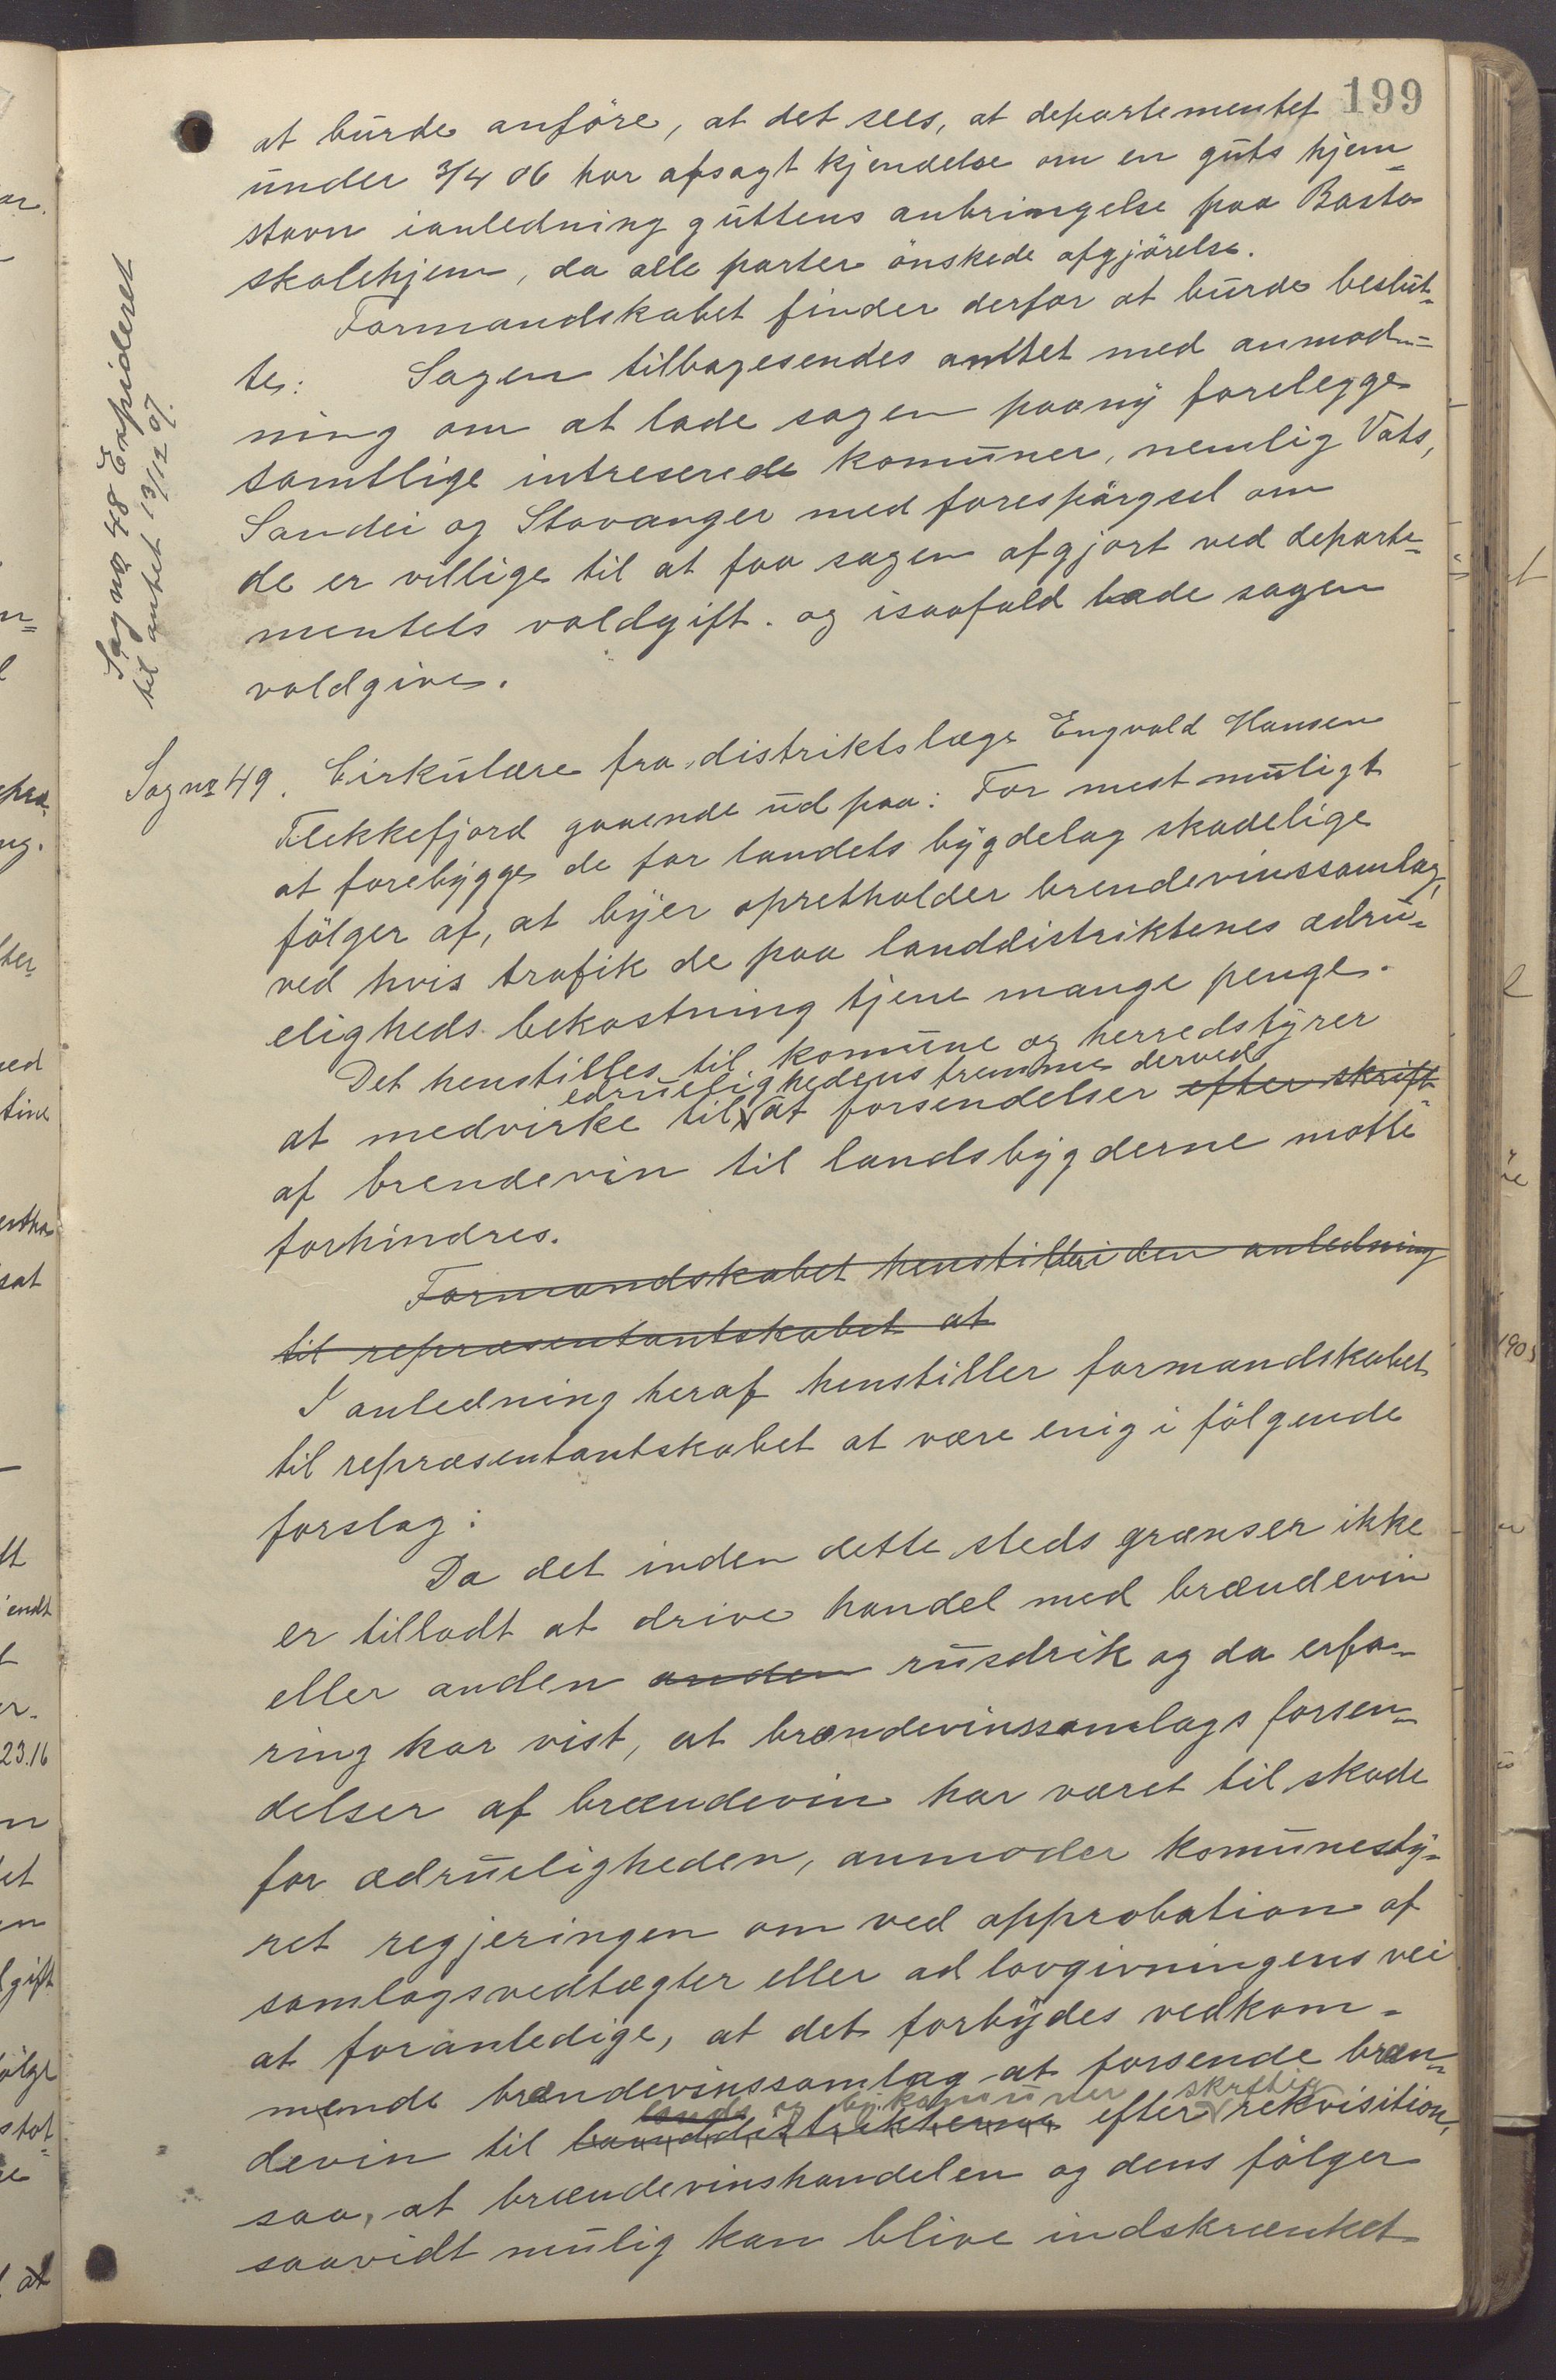 199
at burde anføre, at det sees, at departementet
under 3/4 06 har afsagt kjendelse om en guts hjem-
stavn ianledning guttens anbringelse paa Bastø
skolehjem, da alle parter ønskede afgjørelse.
Formandskabet finder derfor at burde beslut-
te: Sagen tilbagesendes amtet med anmod-
ning om at lade sagen paany forelegge
samtlige intreserede komuner, nemlig Vats,
Sandei og Stavanger med forespørgsel om
de er villige til at faa sagen afgjort ved departe-
mentets voldgift. og isaafald lade sagen
voldgive.
Sag no 48 Expideret
til amtet 13/12 07.
Sag no 49. Cirkulære fra distriktslæge Engvald Hansen
Flekkefjord gaaende ud paa: For mest muligt
at forebygge de for landets bygdelag skadelige
følger af, at byer opretholder brendevinssamlag,
ved hvis trafik de paa landdistriktenes ædru-
eligheds bekostning tjene mange penge.
Det henstilles til komune og herredstyrer
edruelighedens fremme derved
at medvirke til at forsendelser efter skrift-
af brendevin til landsbygderne motte
forhindres.
Formandskabet henstiller i den anledning
til repræsentantskabet at
I anledning heraf henstiller formandskabet
til repræsentantskabet at være enig i følgende
forslag:
Da det inden dette steds grænser ikke
er tilladt at drive handel med brændevin
eller anden anden rusdrik og da erfa-
ring har vist, at brændevinssamlags forsen-
delser af brændevin har været til skade
for ædrueligheden, anmoder komunesty-
ret regjeringen om ved approbation af
samlagsvedtægter eller ad lovgivningens vei
at foranledige, at det forbydes vedkom-
mende brændevinssamlag at forsende bræn-
lands og by. komuner skriftlig
devin til landdistrikterne efter rekvisition,
saa, at brændevinshandelen og dens følger
saavidt mulig kan blive indskrænket